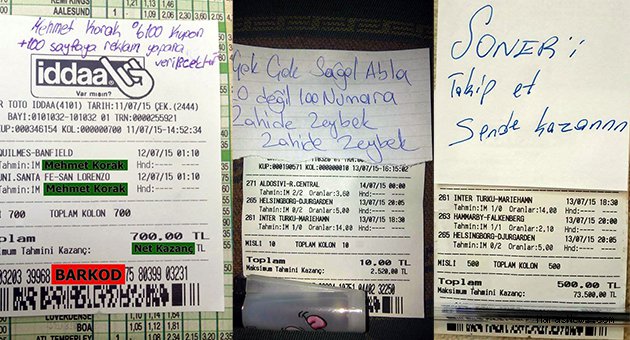 REMPERINGS
AALESUND
Mehmet Korak %100 Kupon
+100 sayfaya reklam yapana
verilecektir
iddaa
Var mısın?
SPOR TOTO IDDAA(4101) TARIH:11/07/15 ÇEK.(2444)
BAYI:0101032-101032 01 TRN:0000255921
KUP:000346154 KOL:000000700 11/07/15-14:52:34
QUILMES-BANFIELD 12/07/15 01:10
Tahmin:IM Mehmet Korak Hnd:
UNI.SANTA FE-SAN LORENZO 12/07/15 01:10
Tahmin:IM Mehmet Korak Hnd:
700 TOPLAM KOLON 700
Toplam 700.00 TL
Maksimum Tahmini Kazanç: Net Kazanç TL
03203 39968 BARKOD 75 80399 03231
BOA
Çok Çok Sağol Abla
10 değil 100 Numara
Zahide Zeybek
Zahide Zeybek
KUP:000190571 KOL:000000010 13/07/15-16:15:02
271 ALDOSIVI-R.CENTRAL 14/07/15 00:00
Tahmin:IM 2/2 Oranlar:3,60 Hnd:
265 HELSINGBORG-DJURGARDEN 13/07/15 20:05
Tahmin:IM 0/2 Oranlar:5,00 Hnd:
261 INTER TURKU-MARIEHAMN 13/07/15 18:30
Tahmin:IM 1/0 Oranlar:14,00 Hnd:
MISLI 10 TOPLAM KOLON 10
Toplam 10.00 TL
Maksimum Tahmini Kazanç: 2.520,00 TL
SONER ;;
Takip et
Sende kazannnn
261 INTER TURKU-MARIEHAMN 13/07/15 18:30
Tahmin:IM 1/0 Oranlar:14,00 Hnd:
263 HAMMARBY-FALKENBERG 13/07/15 20:05
Tahmin:IM 1/1 Oranlar:2,10 Hnd:
265 HELSINGBORG-DJURGARDEN 13/07/15 20:05
Tahmin:IM 0/2 Oranlar:5,00 Hnd:
MISLI 500 TOPLAM KOLON 500
Toplam 500.00 TL
Maksimum Tahmini Kazanç: 73.500,00 TL